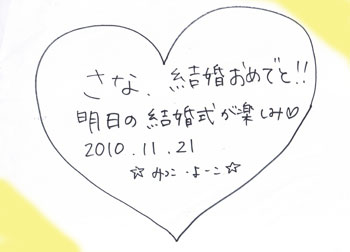 さな、結婚おめでと!!
明日の結婚式が楽しみ♡
2010.11.21
☆みつこ・よーこ☆